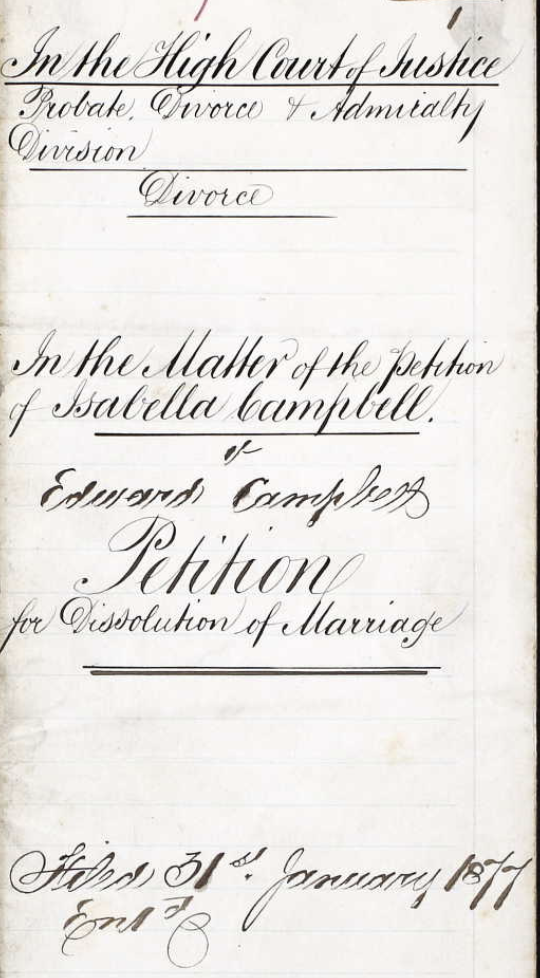 1
In the High Court of Justice
Probate, Divorce & Admiralty
Division
Divorce
In the Matter of the Petition
of Isabella Campbell.
Edward Campbell
Petition
for Dissolution of Marriage
Filed 31st January 1877
Entd